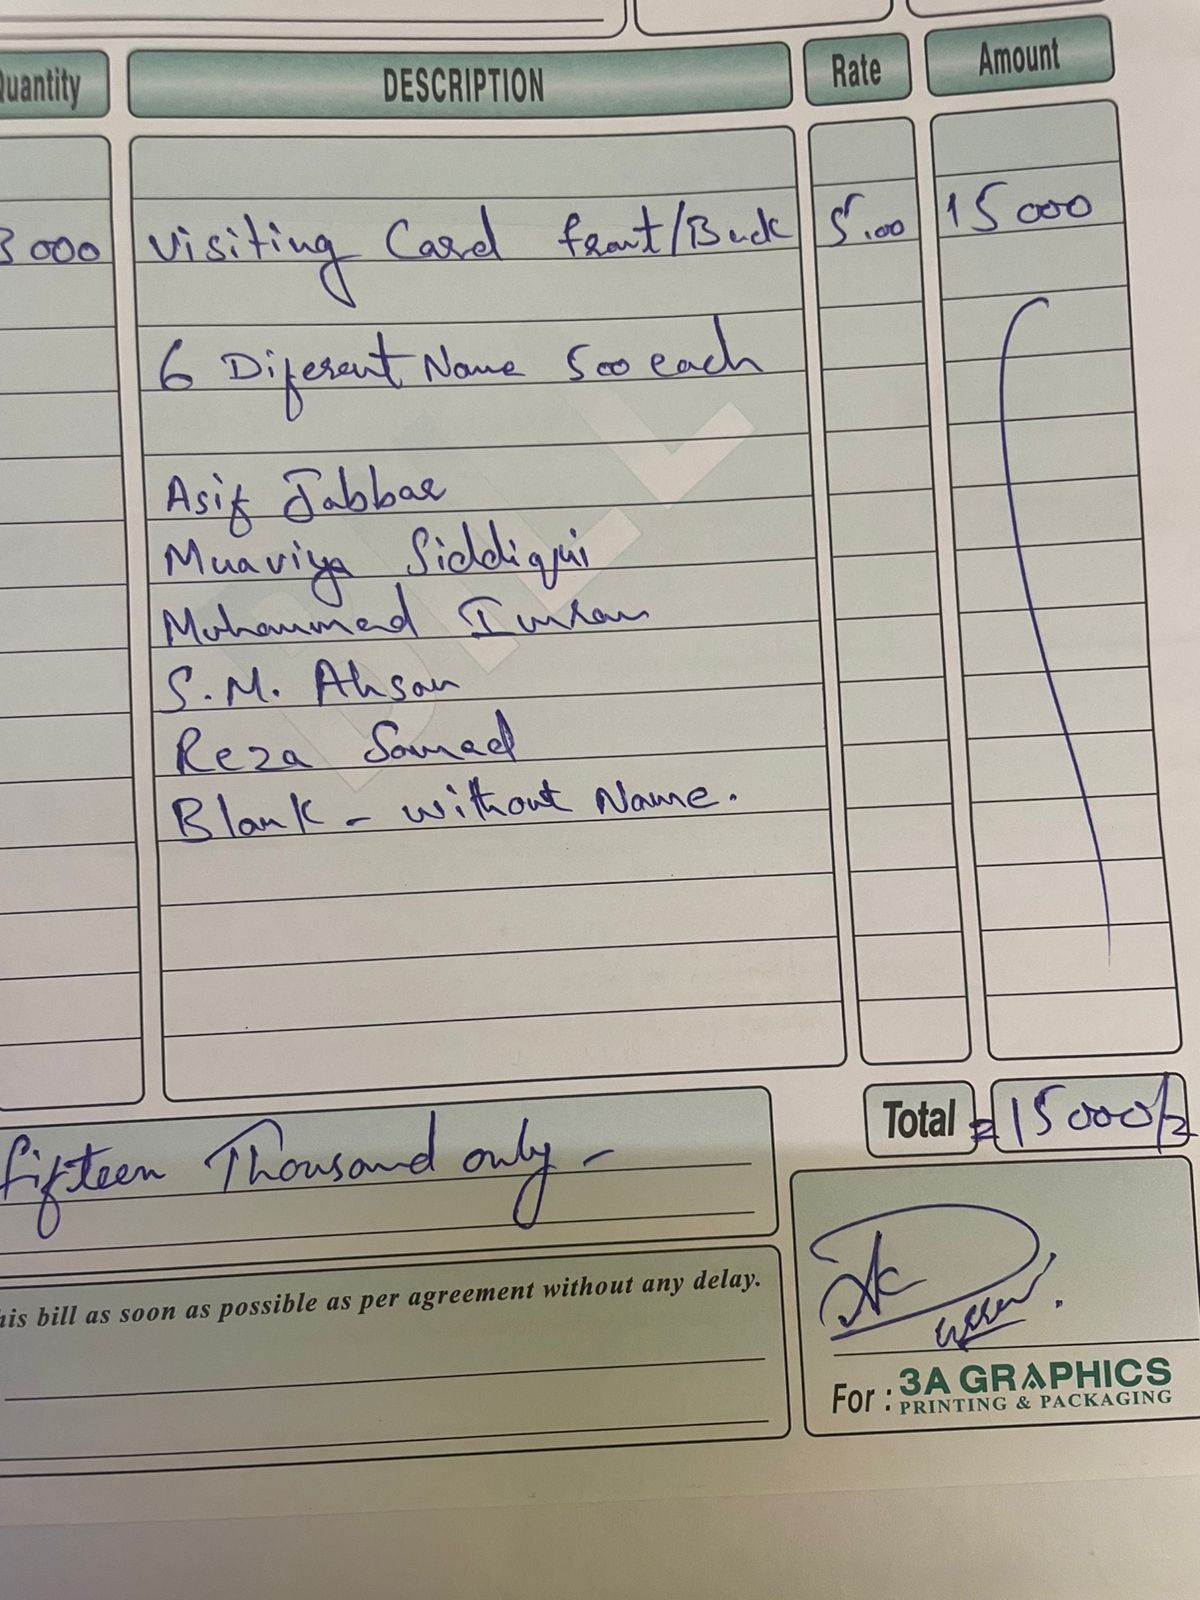 Quantity DESCRIPTION Rate Amount
3000 Visiting Card front/Back 5.00 15000
6 Diferent Name 500 each
Asif Jabbar
Muaviya Siddiqui
Muhammad Imran
S.M. Ahsan
Reza Samad
Blank - without Name.
BILL
Total = 15000/=
fifteen Thousand only -
his bill as soon as possible as per agreement without any delay.
For : 3A GRAPHICS
PRINTING & PACKAGING